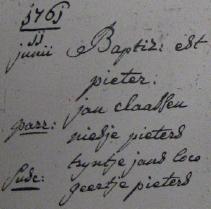 1761
11 junii Baptiz: est
pieter:
jan claassen
parr: nieltje pieters
tryntje jans loco
susc: geertje pieters